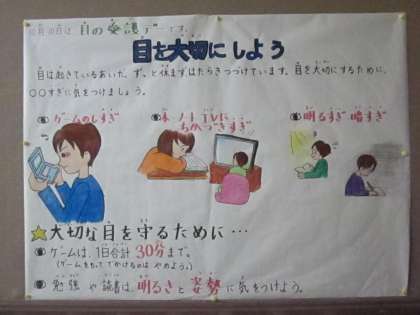 10月10日は、目の愛護デーです。
目を大切にしよう
目は起きているあいだ、ずっと休まずはたらきつづけています。目を大切にするために、
○○すぎに気をつけましょう。
ゲームのしすぎ
本・ノート・TVに ちかづきすぎ
明るすぎ 暗すぎ
☆大切な目を守るために…
ゲームは、1日合計30分まで。
(ゲームをもってでかけるのは やめよう。)
勉強や読書は、明るさと姿勢に気をつけよう。